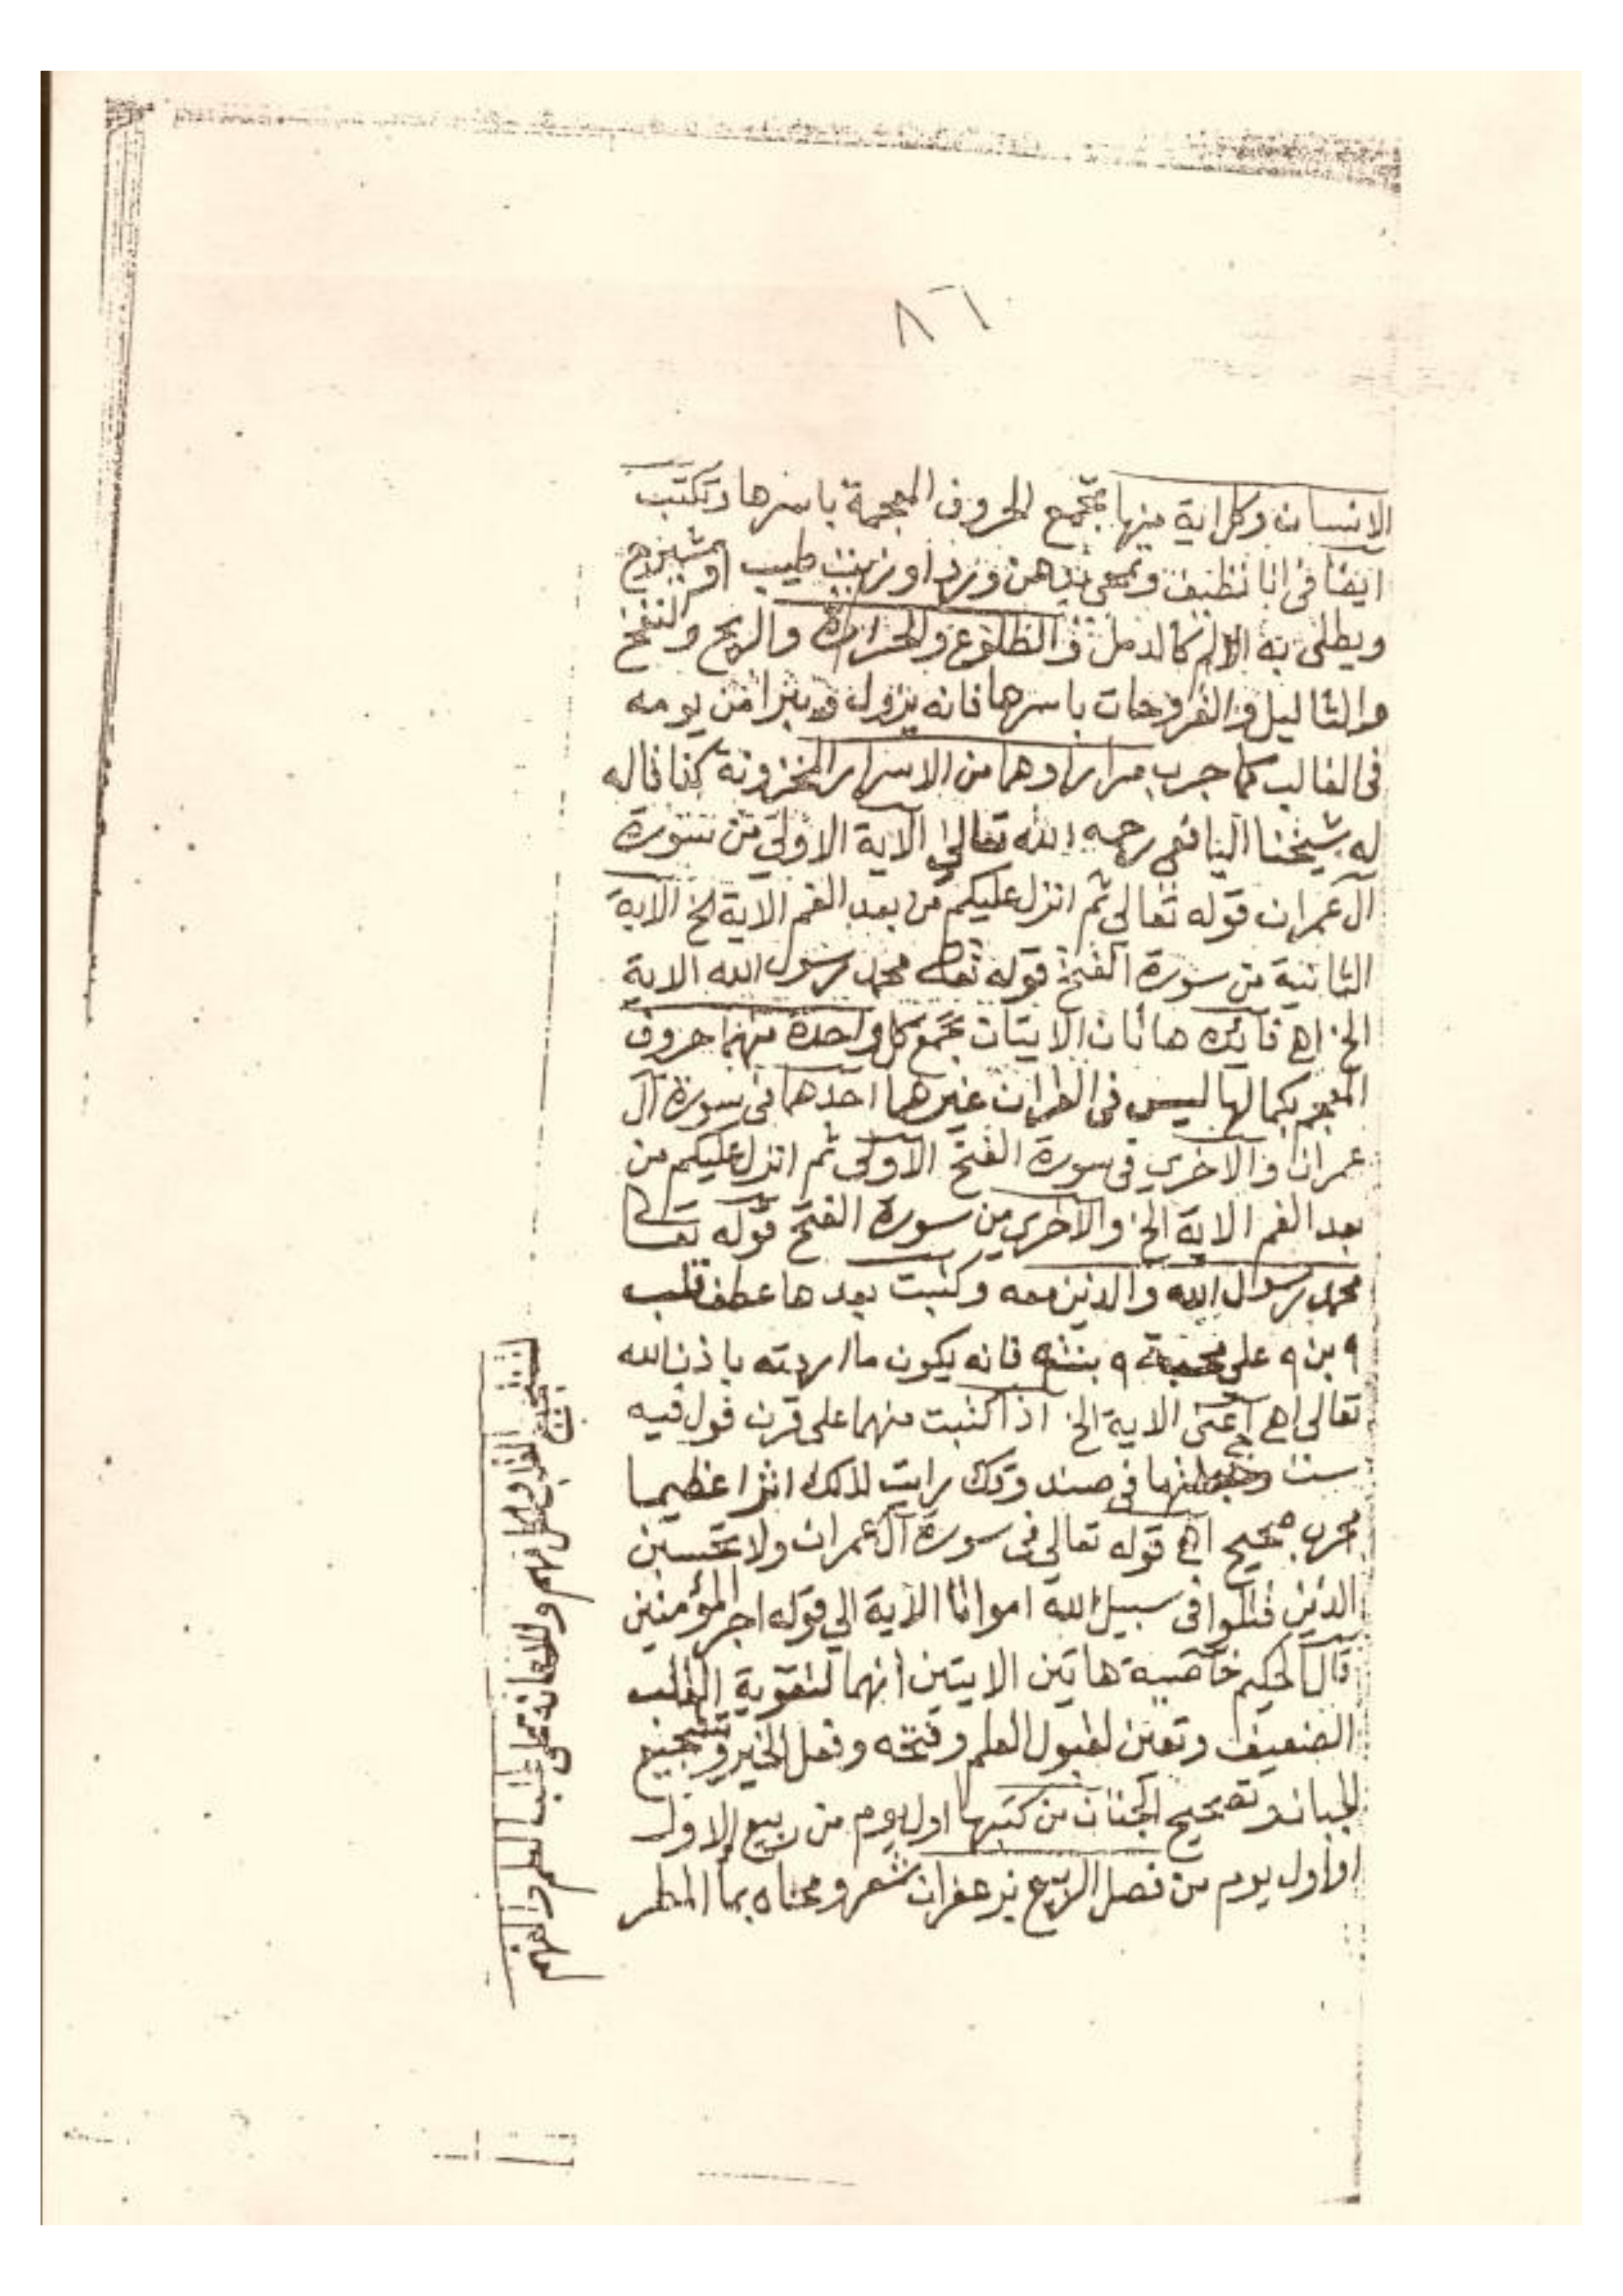 ٨٦
الانسان وكل اية منها تجمع الحروف المعجمة باسرها وتكتب
ايضا فى انا نظيف وتمحى بدهن ورد او زيت طيب او شيرج
ويطلى به الالم كالدمل والطلوع والحزازة والريح والنفخ
والثاليل والقروحات باسرها فانه يزول ويبرا من يومه
فى الغالب كما جرب مرارا وهما من الاسرار المخزونة كذا قاله
له شيخنا اليافعى رحمه الله تعالى الاية الاولى من سورة
آل عمران قوله تعالى ثم انزل عليكم من بعد الغم الاية الخ الاية
الثانية من سورة الفتح قوله تعالى محمد رسول الله الاية
الخ اهـ فائده هاتان الايتان تجمع كل واحدة منهما حروف
المعجم بكمالها ليس فى القران غيرهما احدهما فى سورة آل
عمران والاخري فى سورة الفتح الاولى ثم انزل عليكم من
بعد الغم الاية الخ والاخري من سورة الفتح قوله تعالى
محمد رسول الله والذين معه وكتبت بعدها عطف قلب
٩ بن ٩ على محبة ٩ بنت ٩ فانه يكون ما اردته باذن الله
تعالى اهـ اعنى الاية الخ اذا كتبت منهما على قرن فول فيه
ست وجعلتها فى صندوقك رايت لذلك اثرا عظيما
مجرب صحيح اهـ قوله تعالى فى سورة آل عمران ولا تحسبن
الذين قتلوا فى سبيل الله امواتا الاية الي قوله اجر المؤمنين
قال الحكيم خاصية هاتين الايتين انهما لتقوية القلب
الضعيف وتعين لقبول العلم وفتحه وفعل الخير وتشجيع
الجبان وتصحيح الجنان من كتبها اول يوم من ربيع الاول
او اول يوم من فصل الربيع بزعفران شعر ومحاه بما المطر
والاعانة على طلب العلم والفهم